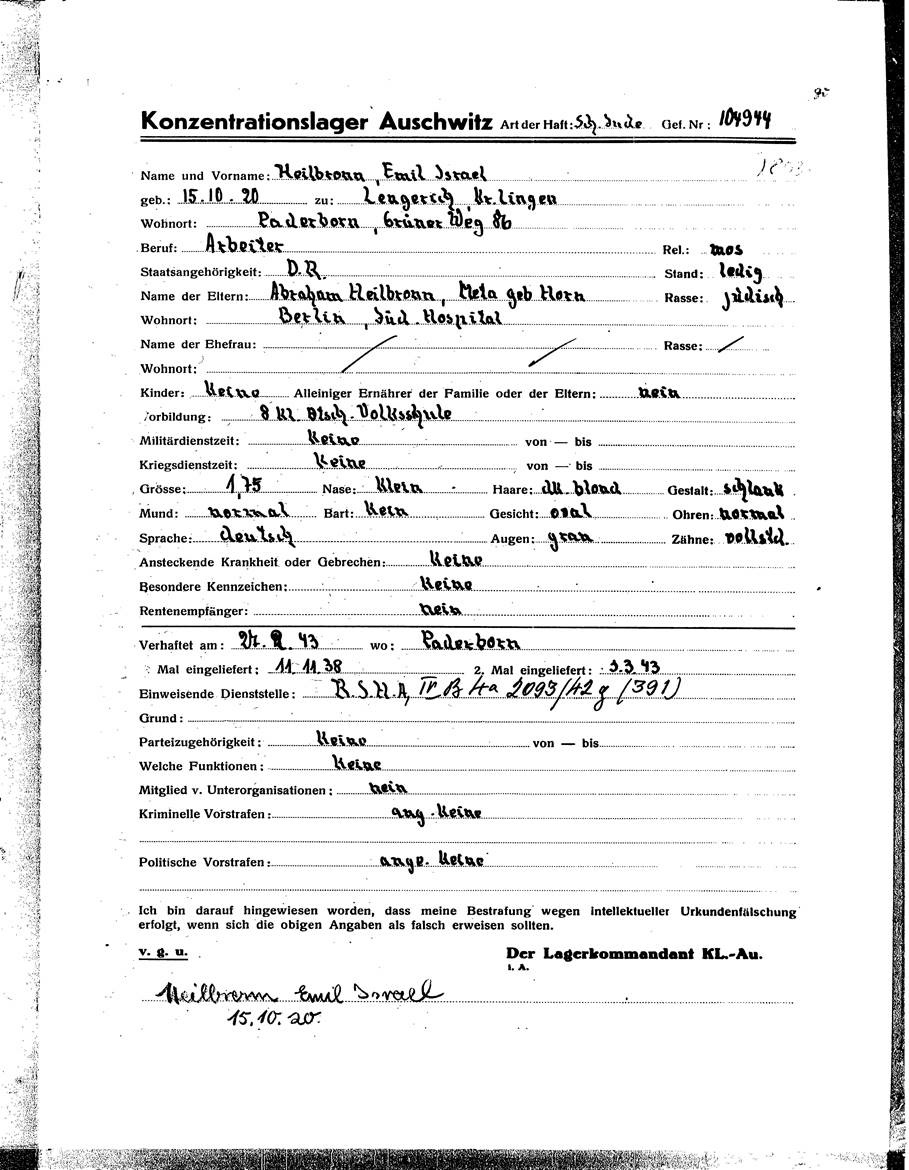 Konzentrationslager Auschwitz Art der Haft: Sch. Jude Gef. Nr: 104944
Name und Vorname: Heilbronn, Emil Israel
geb.: 15.10.20 zu: Lengerich, Kr. Lingen
Wohnort: Paderborn, Grüner Weg 86
Beruf: Arbeiter Rel.: mos
Staatsangehörigkeit: D.R. Stand: ledig
Name der Eltern: Abraham Heilbronn, Meta geb Horn Rasse: jüdisch
Wohnort: Berlin, Jüd. Hospital
Name der Ehefrau: / / Rasse: /
Wohnort:
Kinder: Keine Alleiniger Ernährer der Familie oder der Eltern: nein
Vorbildung: 8 Kl. Dtsch. Volksschule
Militärdienstzeit: Keine von — bis
Kriegsdienstzeit: Keine von — bis
Grösse: 1,75 Nase: Klein Haare: dk. blond Gestalt: schlank
Mund: normal Bart: Kein Gesicht: oval Ohren: normal
Sprache: deutsch Augen: grau Zähne: vollstd.
Ansteckende Krankheit oder Gebrechen: Keine
Besondere Kennzeichen: Keine
Rentenempfänger: nein
Verhaftet am: 27.2.43 wo: Paderborn
Mal eingeliefert: 11.11.38 2. Mal eingeliefert: 3.3.43
Einweisende Dienststelle: R.S.H.A, IV B 4a 2093/42 g (391)
Grund:
Parteizugehörigkeit: Keine von — bis
Welche Funktionen: Keine
Mitglied v. Unterorganisationen: nein
Kriminelle Vorstrafen: ang. Keine
Politische Vorstrafen: ange. Keine
Ich bin darauf hingewiesen worden, dass meine Bestrafung wegen intellektueller Urkundenfälschung
erfolgt, wenn sich die obigen Angaben als falsch erweisen sollten.
v. g. u. Der Lagerkommandant KL.-Au.
i. A.
Heilbronn Emil Israel
15.10.20.